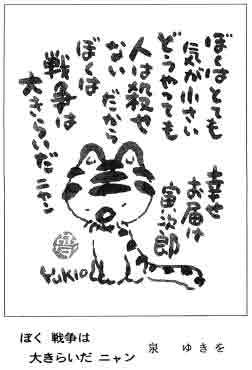 ぼくはとても
気が小さい
どうやっても
人は殺せ
ない だから
ぼくは
戦争は
大きらいだ ニャン
幸せ
お届け
寅次郎
Yukio
ぼく 戦争は
大きらいだ ニャン
泉 ゆきを